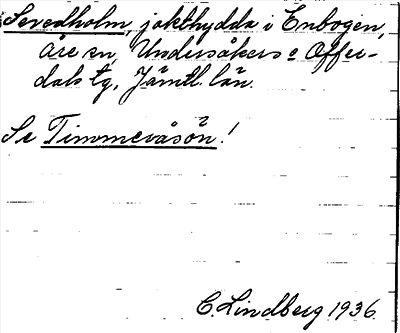 Sevedholm, jakthydda i Enbogen,
Åre sn, Undersåkers o Offer-
dals tg, Jämtl. län.
Se Timmevåsön!
C. Lindberg 1936.